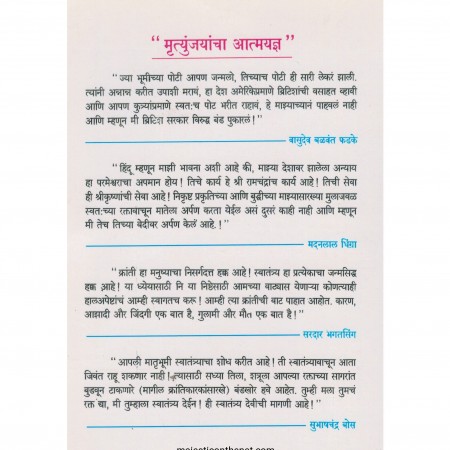 “ मृत्युंजयांचा आत्मयज्ञ ”
“ ज्या भूमीच्या पोटी आपण जन्मलो, तिच्याच पोटी ही सारी लेकरं झाली.
त्यांनी अन्नान्न करीत उपाशी मरावं, हा देश अमेरिकेप्रमाणे ब्रिटिशांची वसाहत व्हावी
आणि आपण कुत्र्याप्रमाणे स्वतःच पोट भरीत राहावं, हे माझ्याच्यानं पाहवलं नाही
आणि म्हणून मी ब्रिटिश सरकार विरुद्ध बंड पुकारलं ! ”
वासुदेव बळवंत फडके
“ हिंदू म्हणून माझी भावना अशी आहे की, माझ्या देशावर झालेला अन्याय
हा परमेश्वराचा अपमान होय ! तिचे कार्य हे श्री रामचंद्रांच कार्य आहे ! तिची सेवा
ही श्रीकृष्णांची सेवा आहे ! निकृष्ट प्रकृतिच्या आणि बुद्धीच्या माझ्यासारख्या मुलाजवळ
स्वतःच्या रक्तावाचून मातेला अर्पण करता येईल असं दुसरं काही नाही आणि म्हणून
मी तेच तिच्या वेदीवर अर्पण केलं आहे ! ”
मदनलाल धिंग्रा
“ क्रांती हा मनुष्याचा निसर्गदत्त हक्क आहे ! स्वातंत्र्य हा प्रत्येकाचा जन्मसिद्ध
हक्क आहे ! या ध्येयासाठी नि या निष्ठेसाठी आमच्या वाट्यास येणाऱ्या कोणत्याही
हालअपेष्टांचं आम्ही स्वागतच करू ! आम्ही त्या क्रांतीची वाट पाहात आहोत. कारण,
आझादी और जिंदगी एक बात है, गुलामी और मौत एक बात है ! ”
सरदार भगतसिंग
“ आपली मातृभूमी स्वातंत्र्याचा शोध करीत आहे ! ती स्वातंत्र्यावाचून आता
जिवंत राहू शकणार नाही ! त्यासाठी सध्या तिला, शत्रूला आपल्या रक्ताच्या सागरांत
बुडवून टाकणारे (मागील क्रांतिकारकांसारखे) बंडखोर हवे आहेत. तुम्ही मला तुमचं
रक्त द्या, मी तुम्हाला स्वातंत्र्य देईन ! ही स्वातंत्र्य देवीची मागणी आहे ! ”
सुभाषचंद्र बोस